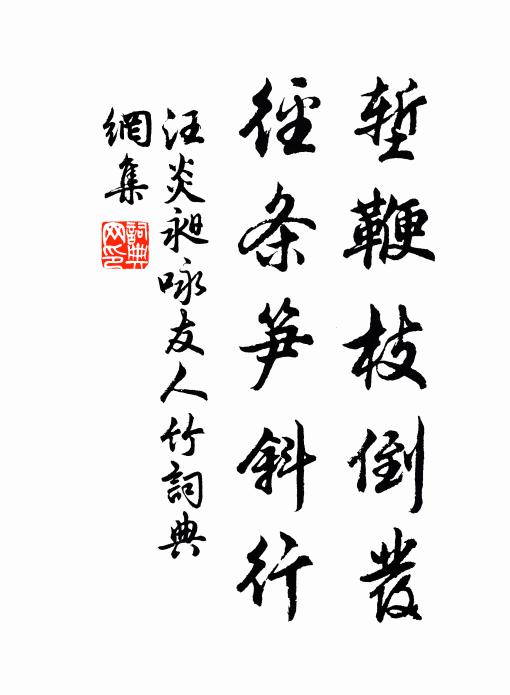 堑鞭枝倒发
径条笋斜行
汪炎昶咏友人竹詞典
網集
詞典
网印